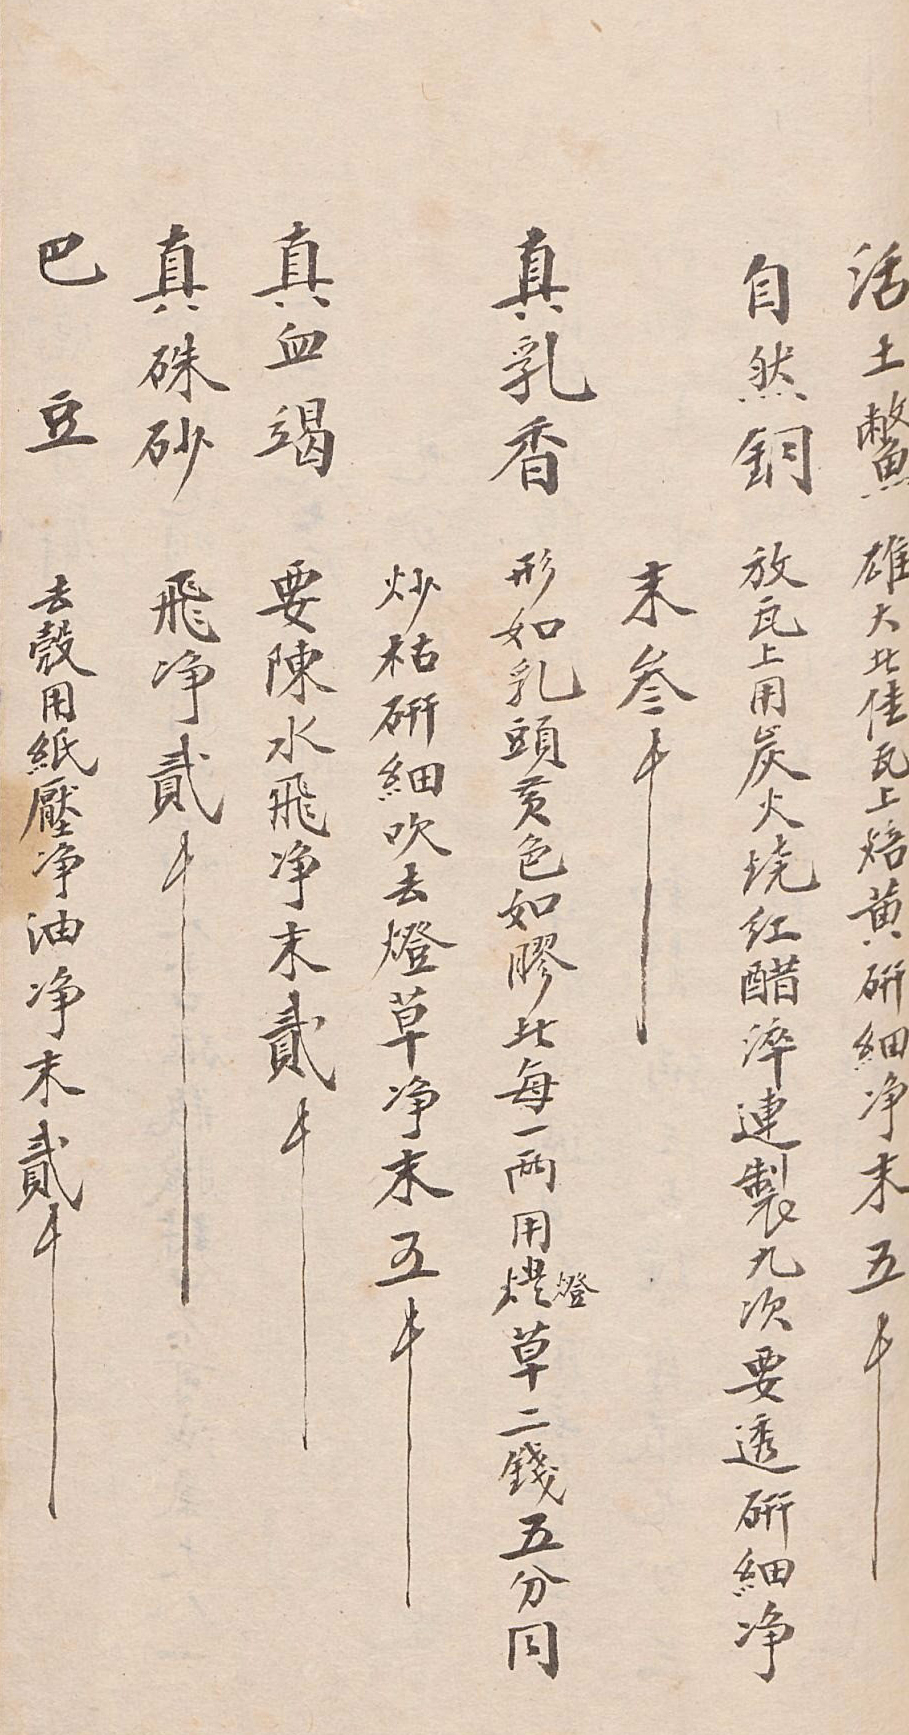 活土鱉 雄大者佳瓦上焙黄研細净末五钅
自然銅 放瓦上用炭火烧红醋淬連製九次要透研細净
末叁钅
真乳香 形如乳頭黄色如膠者每一两用燈草二錢五分同
炒枯研細吹去燈草净末五钅
真血竭 要陳水飛净末貳钅
真硃砂 飛净貳钅
巴豆 去殼用紙壓净油净末貳钅